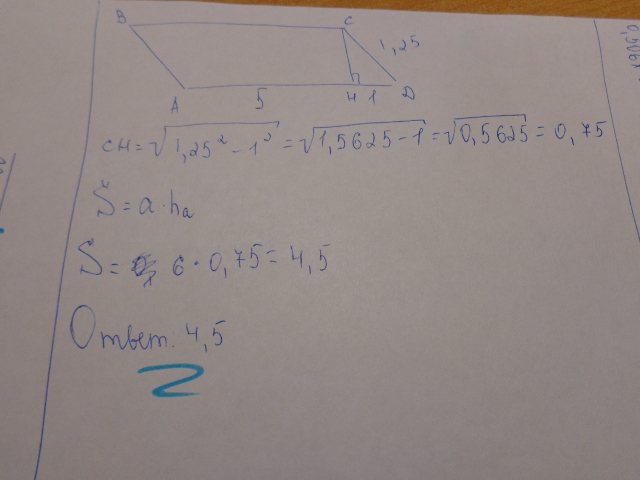 B C
1,25
A 5 H 1 D
CH = √1,25² - 1² = √1,5625 - 1 = √0,5625 = 0,75
S = a · hₐ
S = 6 · 0,75 = 4,5
Ответ: 4,5